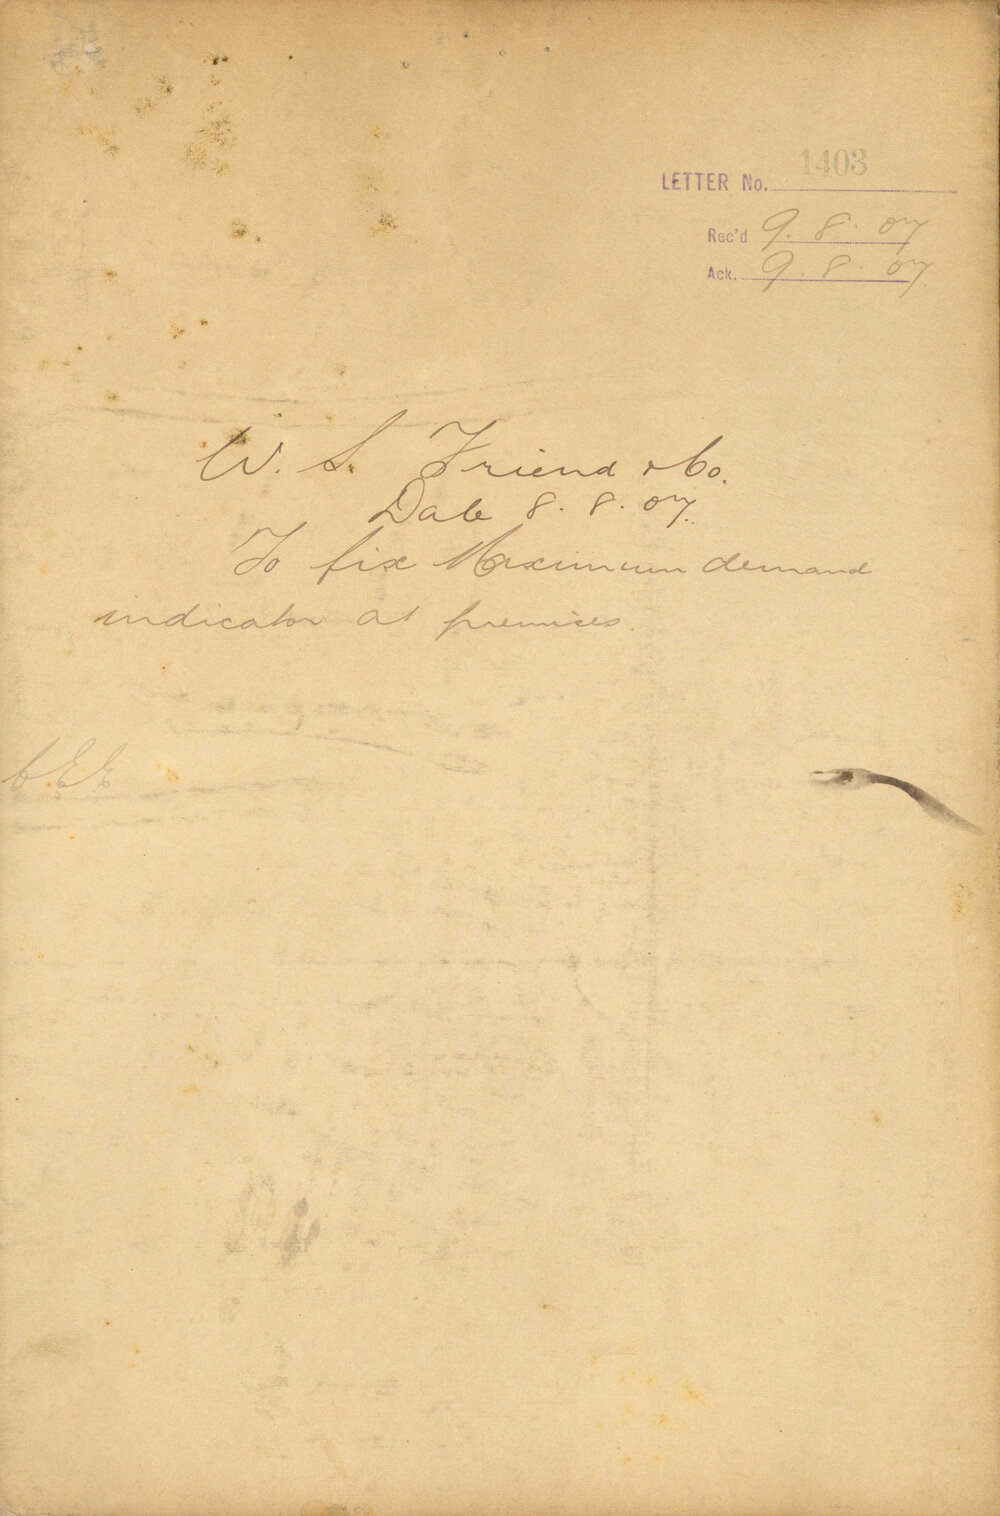 LETTER No. 1403
Rec'd 9. 8. 07
Ack. 9. 8. 07
W. S. Friend & Co.
Date 8. 8. 07.
To fix Maximum demand
indicator at premises.
C.E.E